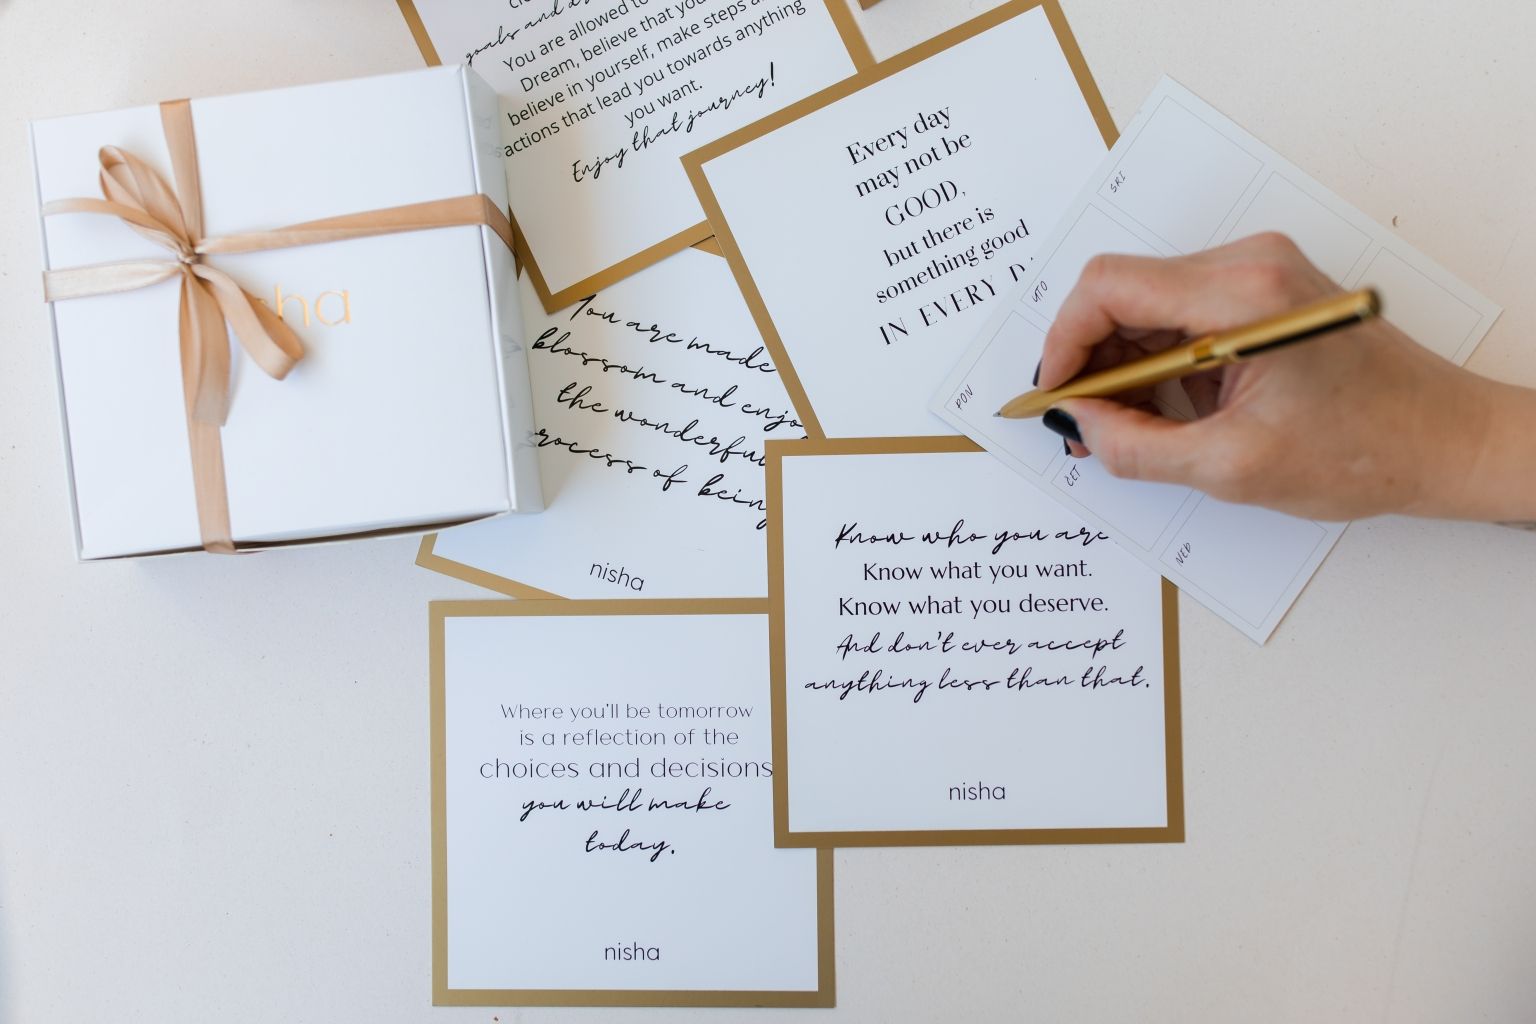 goals and
You are allowed to
Dream, believe that you
believe in yourself, make steps
actions that lead you towards anything
you want.
Enjoy that journey!
Every day
may not be
GOOD,
but there is
something good
IN EVERY
SRI
UTO
PON
ČET
NED
sha
You are made
blossom and enjoy
the wonderful
process of being
nisha
Know who you are
Know what you want.
Know what you deserve.
And don't ever accept
anything less than that.
nisha
Where you'll be tomorrow
is a reflection of the
choices and decisions
you will make
today.
nisha